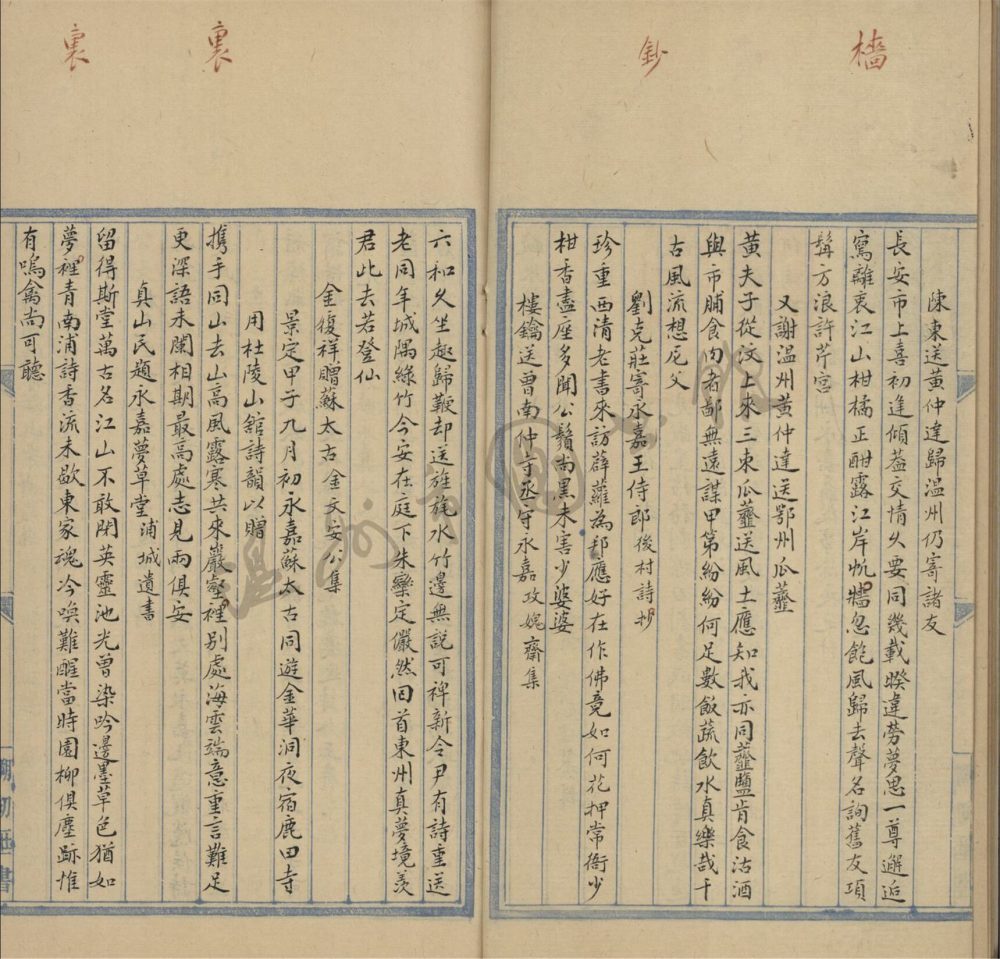 檣
鈔
陳東送黃仲達歸溫州仍寄諸友
長安市上喜初逢傾蓋交情久要同幾載暌違勞夢思一尊邂逅
寫離衷江山柑橘正酣露江岸帆檣忽飽風歸去聲名詢舊友項
髯方浪許芹宮
又謝溫州黃仲達送鄂州瓜虀
黃夫子從汶上來三束瓜虀送風土應知我亦同虀鹽肯食沽酒
與市脯食肉者鄙無遠謀甲第紛紛何足數飯蔬飲水真樂哉千
古風流想尼父
劉克莊寄永嘉王侍郎後村詩抄
珍重西清老書來訪薜蘿為邦應好在作佛竟如何花押常衙少
柑香盡座多聞公鬚尚黑未害少婆娑
樓鑰送曾南仲寺丞守永嘉攻媿齋集
裏
裏
六和久坐趣歸鞭却送旌旄水竹邊無說可裨新令尹有詩重送
老同年城隅綠竹今安在庭下朱欒定儼然回首東州真夢境羨
君此去若登仙
金復祥贈蘇太古金文安公集
景定甲子九月初永嘉蘇太古同遊金華洞夜宿鹿田寺
用杜陵山館詩韻以贈
攜手同山去山高風露寒共來巖壑裡別處海雲端意重言難足
更深語未闌相期最高處志見兩俱安
真山民題永嘉夢草堂浦城遺書
留得斯堂萬古名江山不敢閉英靈池光曾染吟邊墨草色猶如
夢裡青南浦詩香流未歇東家魂冷喚難醒當時園柳俱塵跡惟
有鳴禽尚可聽
溫州市圖書館